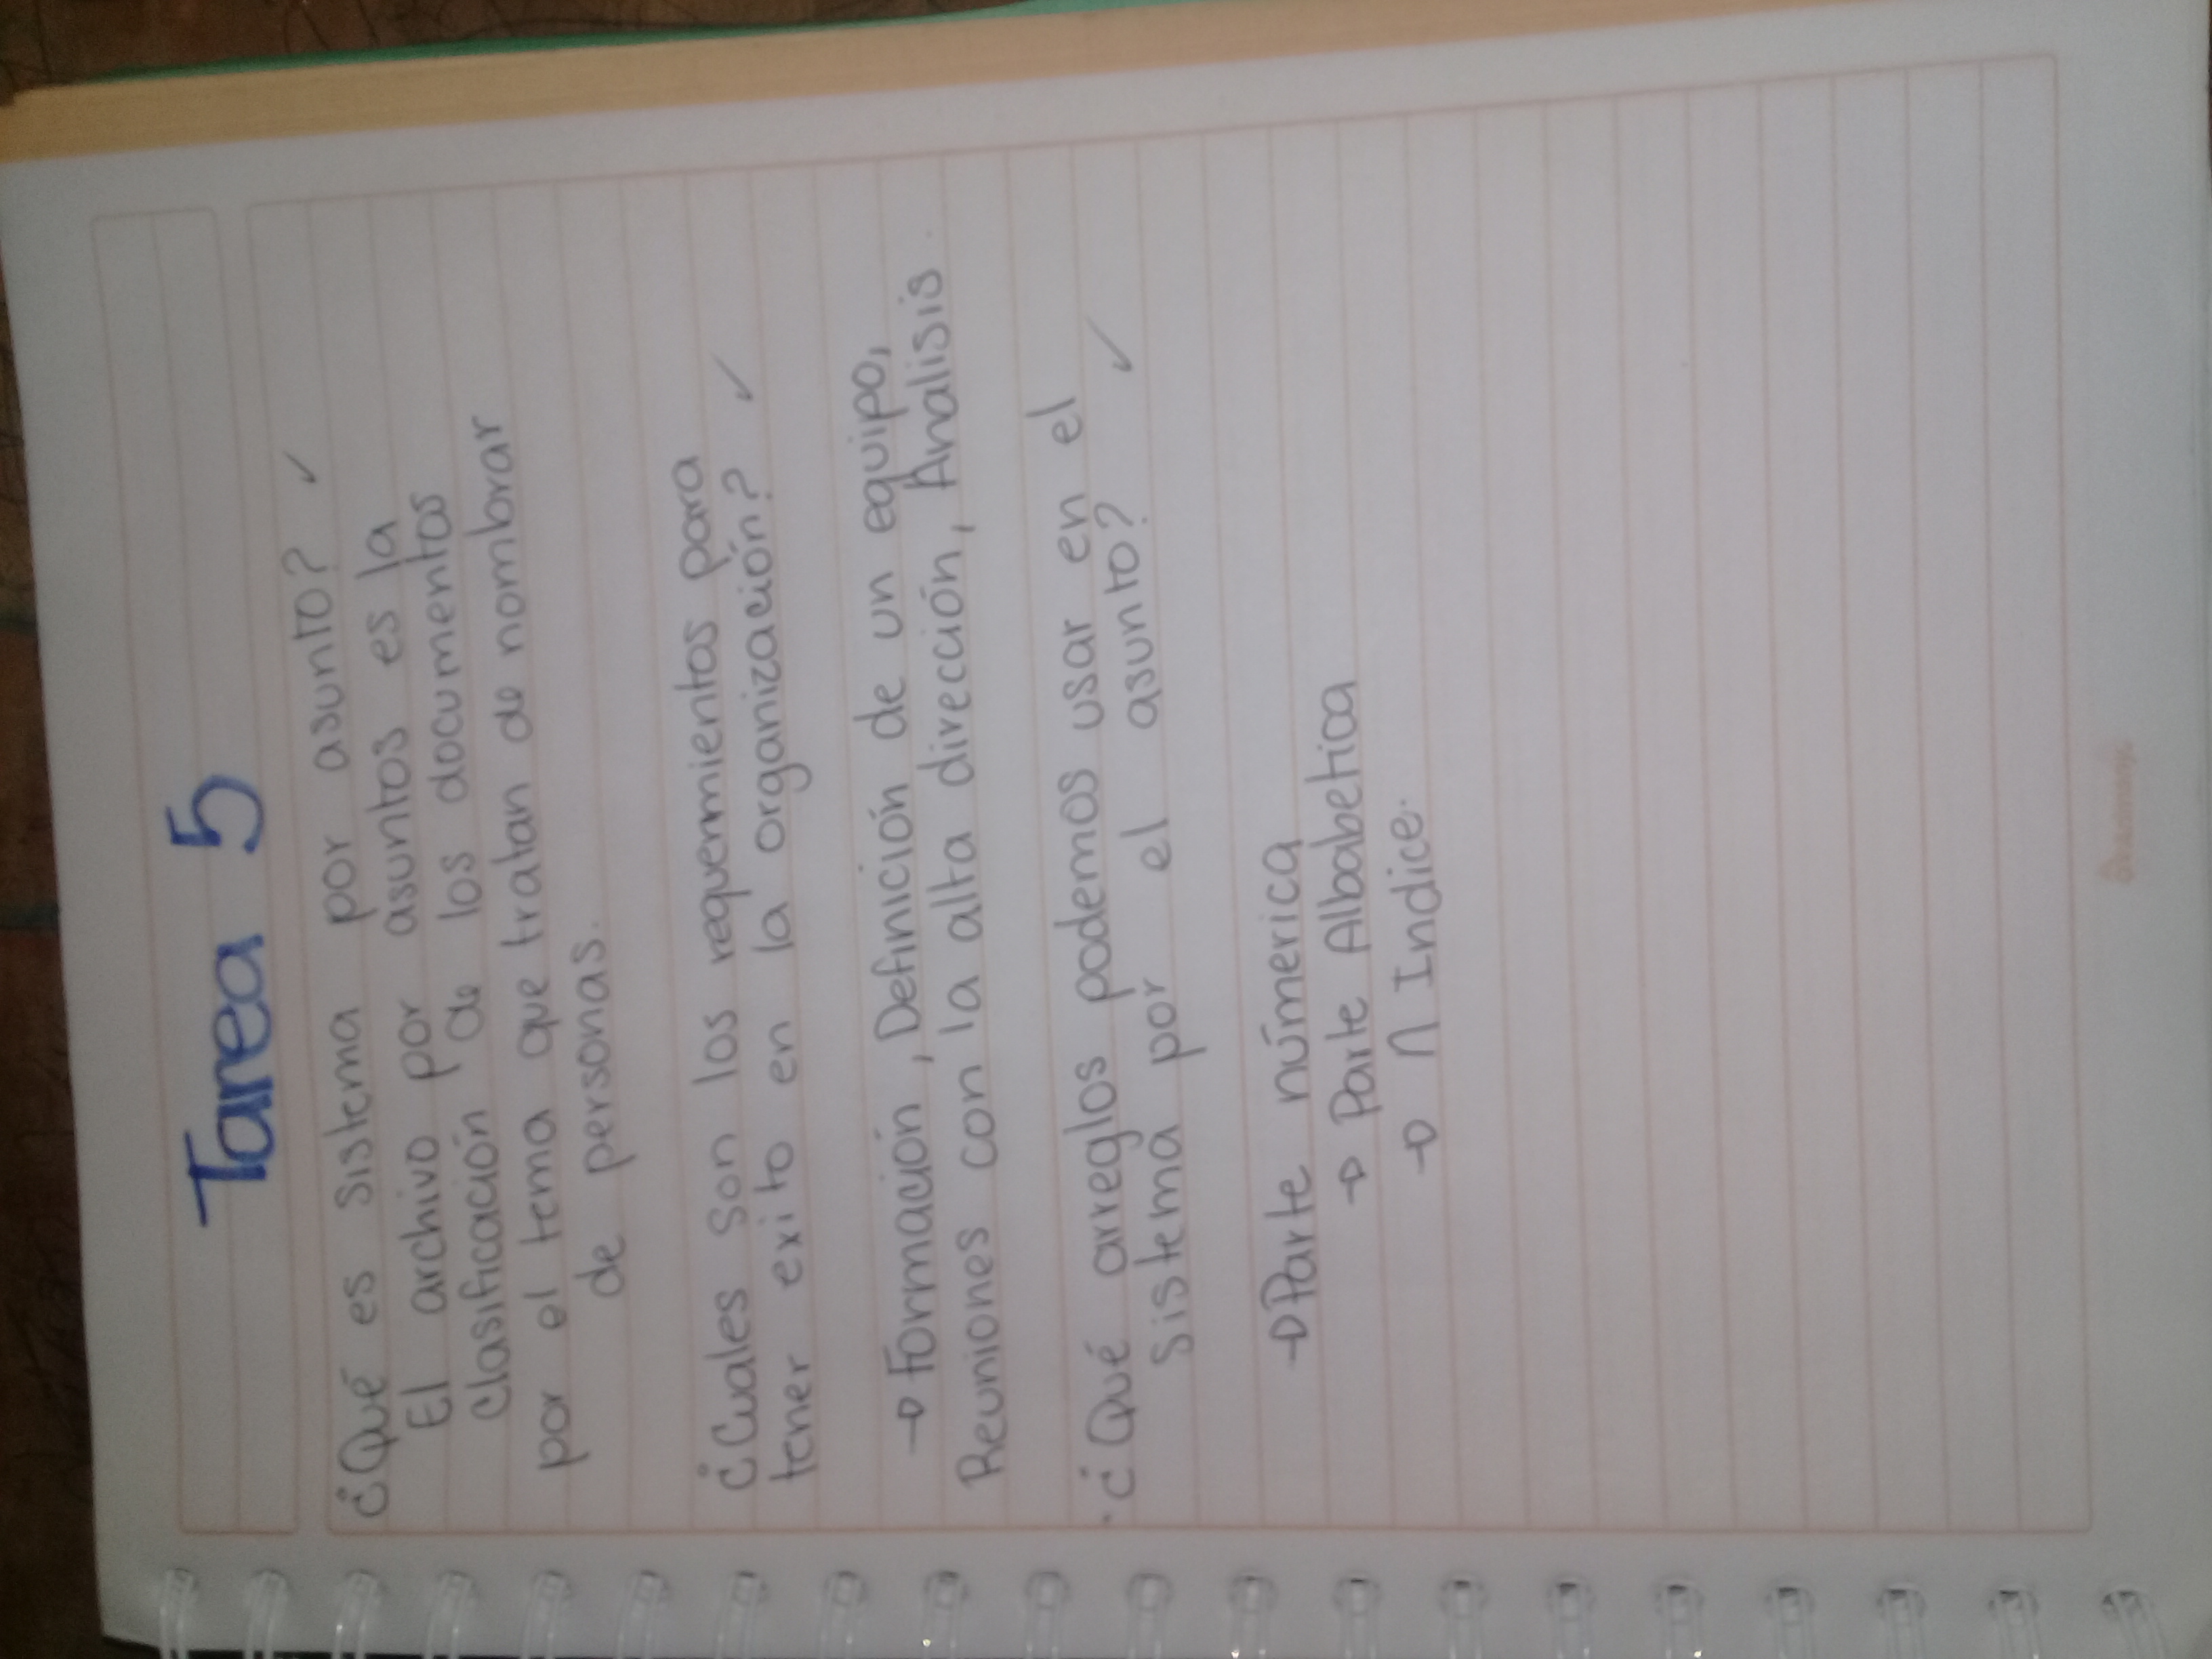 Tarea 5
¿Qué es sistema por asunto? ✓
El archivo por asuntos es la
clasificación de los documentos
por el tema que tratan de nombrar
de personas.
¿Cuales son los requermientos para
tener exito en la organización? ✓
→ Formación, Definición de un equipo,
Reuniones con la alta dirección, Analisis.
· ¿Qué arreglos podemos usar en el
sistema por el asunto? ✓
→ Parte númerica
→ Parte Albabetica
→ Indice.